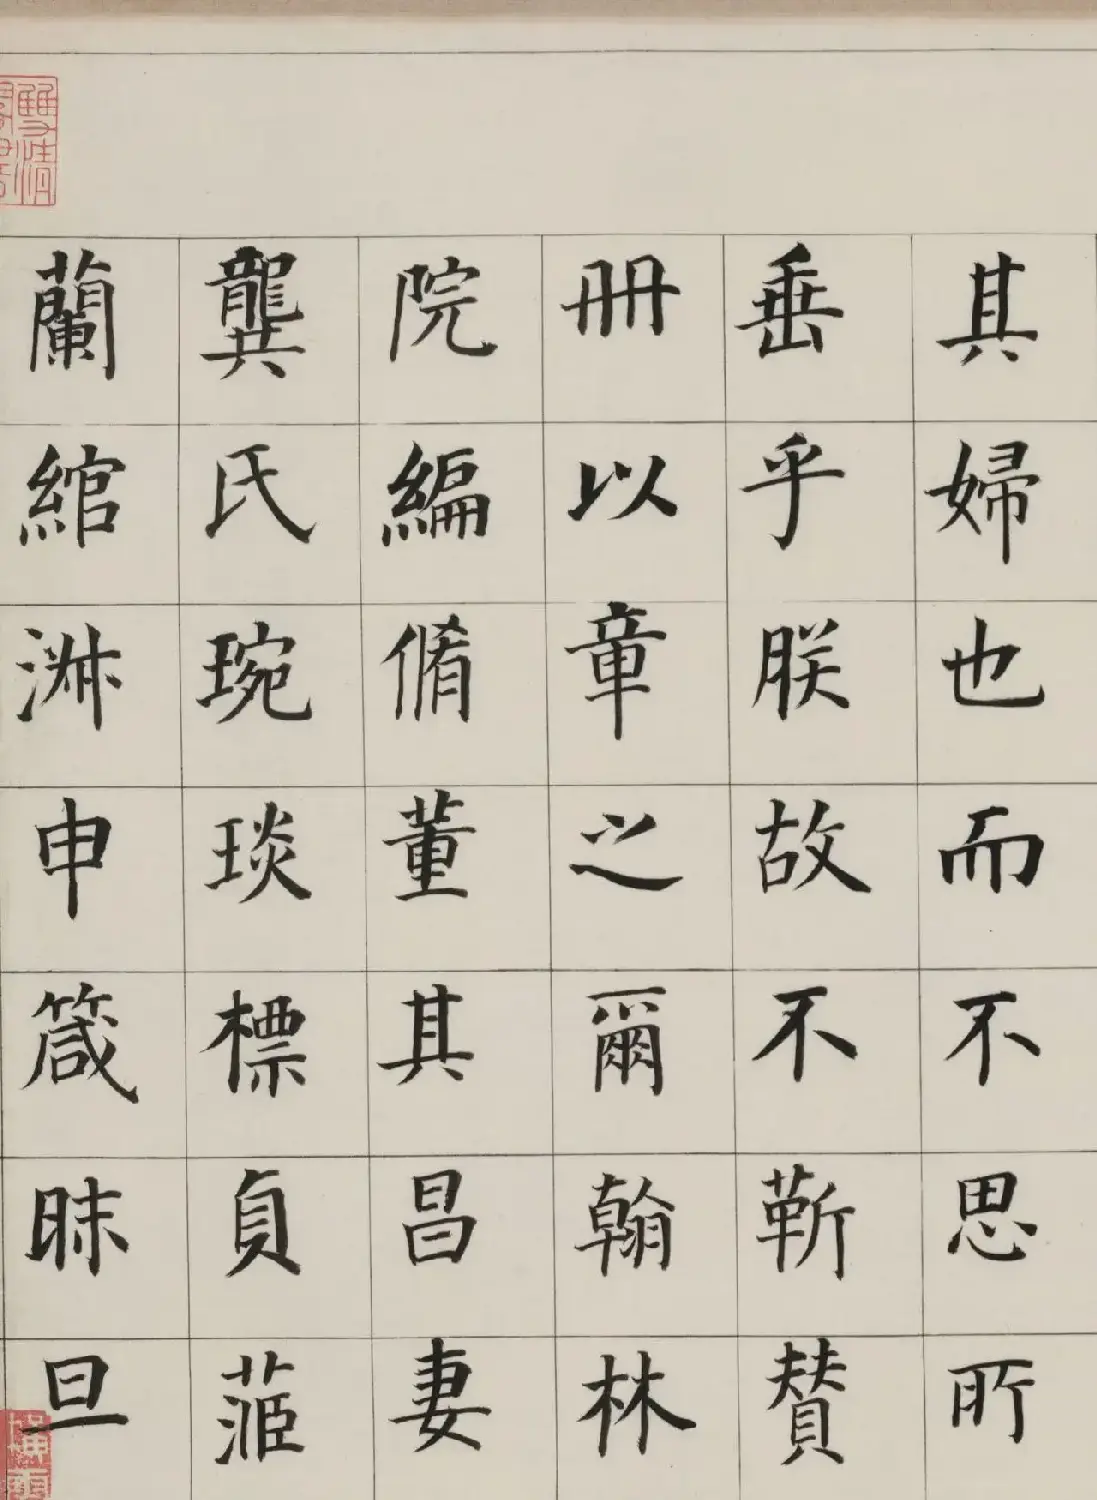 其婦也而不思所
垂乎朕故不靳賛
冊以章之爾翰林
院編脩董其昌妻
龔氏琬琰標貞茝
蘭綰淋申箴昧旦
雙清